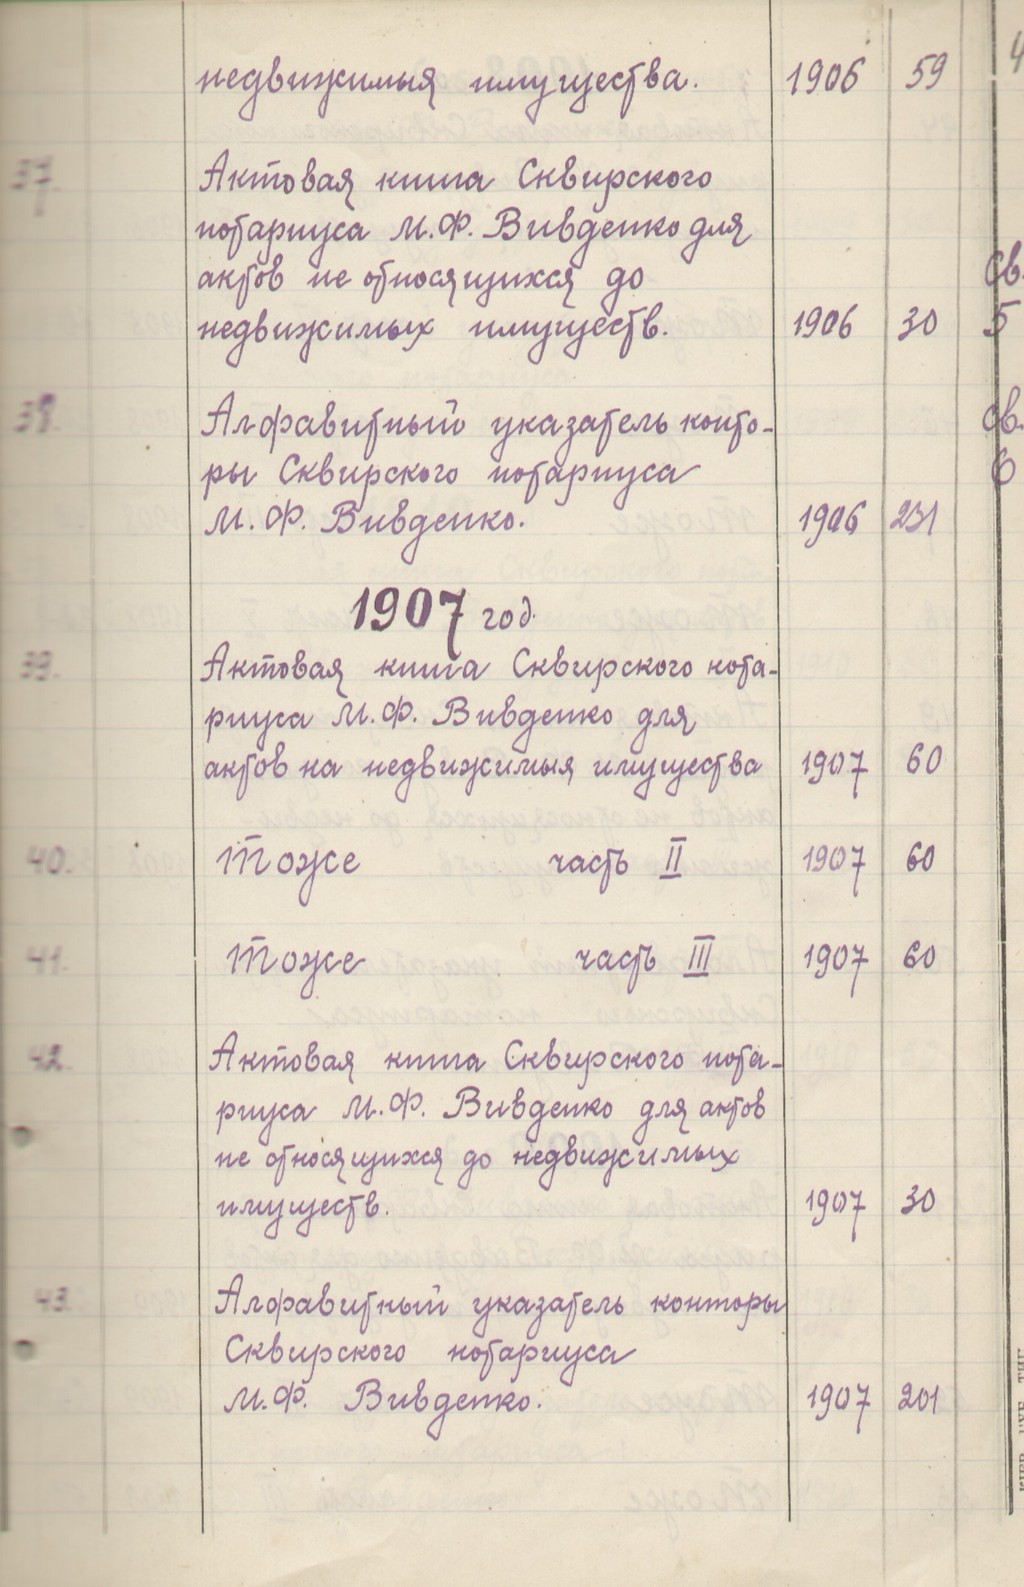 недвижимыя имущества. 1906 59
37. Актовая книга Сквирского
нотариуса М.Ф. Вивденко для
актов не относящихся до
недвижимых имуществ. 1906 30
38. Алфавитный указатель конто-
ры Сквирского нотариуса
М.Ф. Вивденко. 1906 231
1907 год.
39. Актовая книга Сквирского нота-
риуса М.Ф. Вивденко для
актов на недвижимыя имущества 1907 60
40. Тоже часть II 1907 60
41. Тоже часть III 1907 60
42. Актовая книга Сквирского нота-
риуса М.Ф. Вивденко для актов
не относящихся до недвижимых
имуществ. 1907 30
43. Алфавитный указатель конторы
Сквирского нотариуса
М.Ф. Вивденко. 1907 201
св.
5
св.
6